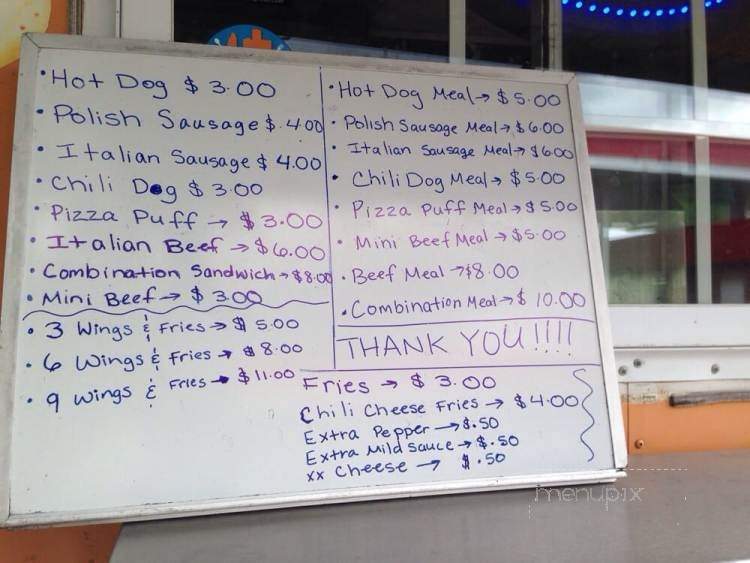 • Hot Dog $ 3.00
• Polish Sausage $. 4.00
• Italian Sausage $ 4.00
• Chili Dog $ 3.00
• Pizza Puff → $ 3.00
• Italian Beef → $6.00
• Combination Sandwich → $8.00
• Mini Beef → $ 3.00
• 3 Wings & Fries → $ 5.00
• 6 Wings & Fries → $ 8.00
• 9 Wings & Fries → $ 11.00
• Hot Dog Meal → $ 5.00
• Polish Sausage Meal → $ 6.00
• Italian Sausage Meal → $6.00
• Chili Dog Meal → $5.00
• Pizza Puff Meal → $ 5.00
• Mini Beef Meal → $5.00
• Beef Meal → $8.00
• Combination Meal → $ 10.00
THANK YOU!!!!
Fries → $ 3.00
Chili Cheese Fries → $4.00
Extra Pepper → $.50
Extra Mild Sauce → $.50
xx Cheese → $.50
menupix